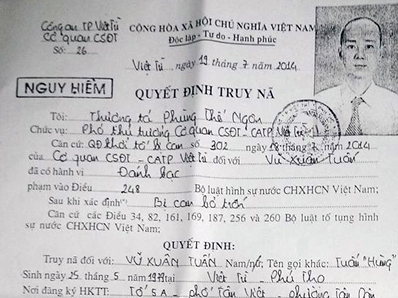 Công an TP Việt Trì
Cơ quan CSĐT
Số: 26
CỘNG HÒA XÃ HỘI CHỦ NGHĨA VIỆT NAM
Độc lập - Tự do - Hạnh phúc
Việt Trì, ngày 19 tháng 7 năm 2014
NGUY HIỂM
QUYẾT ĐỊNH TRUY NÃ
Tôi: Thượng tá Phùng Thế Ngan
Chức vụ: Phó thủ trưởng Cơ quan CSĐT - CATP Việt Trì
Căn cứ: QĐ khởi tố bị can số 302 ngày 18 tháng 2014
của Cơ quan CSĐT - CATP Việt Trì đối với Vũ Xuân Tuấn
đã có hành vi Đánh bạc
phạm vào Điều 248 Bộ luật hình sự nước CHXHCN Việt Nam;
Sau khi xác định Bị can bỏ trốn
Căn cứ các Điều 34, 82, 161, 169, 187, 256 và 260 Bộ luật tố tụng hình
sự nước CHXHCN Việt Nam,
QUYẾT ĐỊNH:
Truy nã đối với: VŨ XUÂN TUẤN Nam/nữ; Tên gọi khác: Tuấn "Hùng"
Sinh ngày 25 tháng 5 năm 1979 tại Việt Trì - Phú Thọ
Nơi đăng ký HKTT: Tổ 5A - phố Tân Việt - phường Tân Dân